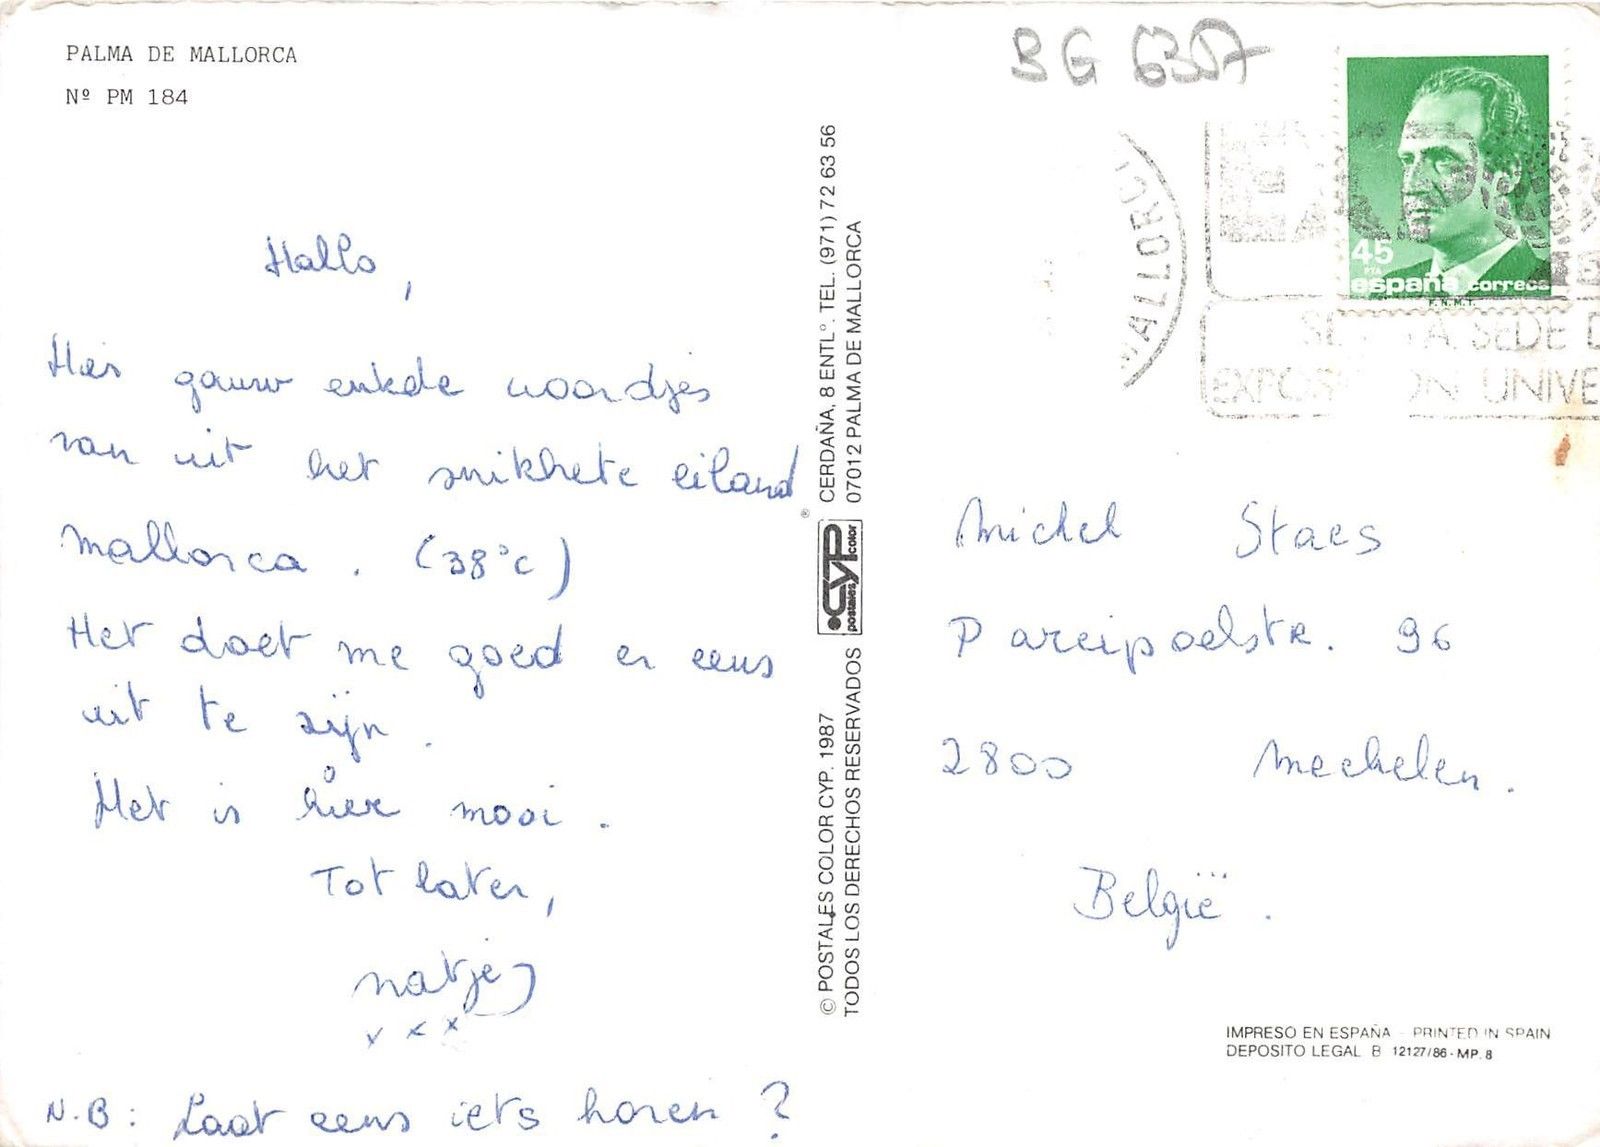 PALMA DE MALLORCA
Nº PM 184
Hallo,
Hier gauw enkele woordjes
van uit het snikhete eiland
Mallorca. (38°C)
Het doet me goed er eens
uit te zijn.
Het is hier mooi.
Tot later,
Natje
x x x
N.B: Laat eens iets horen?
© POSTALES COLOR CYP. 1987
TODOS LOS DERECHOS RESERVADOS
CYP
postales color
®
CERDAÑA, 8 ENTLº. TEL. (971) 72 63 56
07012 PALMA DE MALLORCA
BG 6357
45
PTA
españa correos
F.N.M.T.
MALLORC
SEDE D
UNIVE
Michel Staes
Pareipoelstr. 96
2800 Mechelen.
België.
IMPRESO EN ESPAÑA - PRINTED IN SPAIN
DEPOSITO LEGAL B 12127/86 - MP. 8